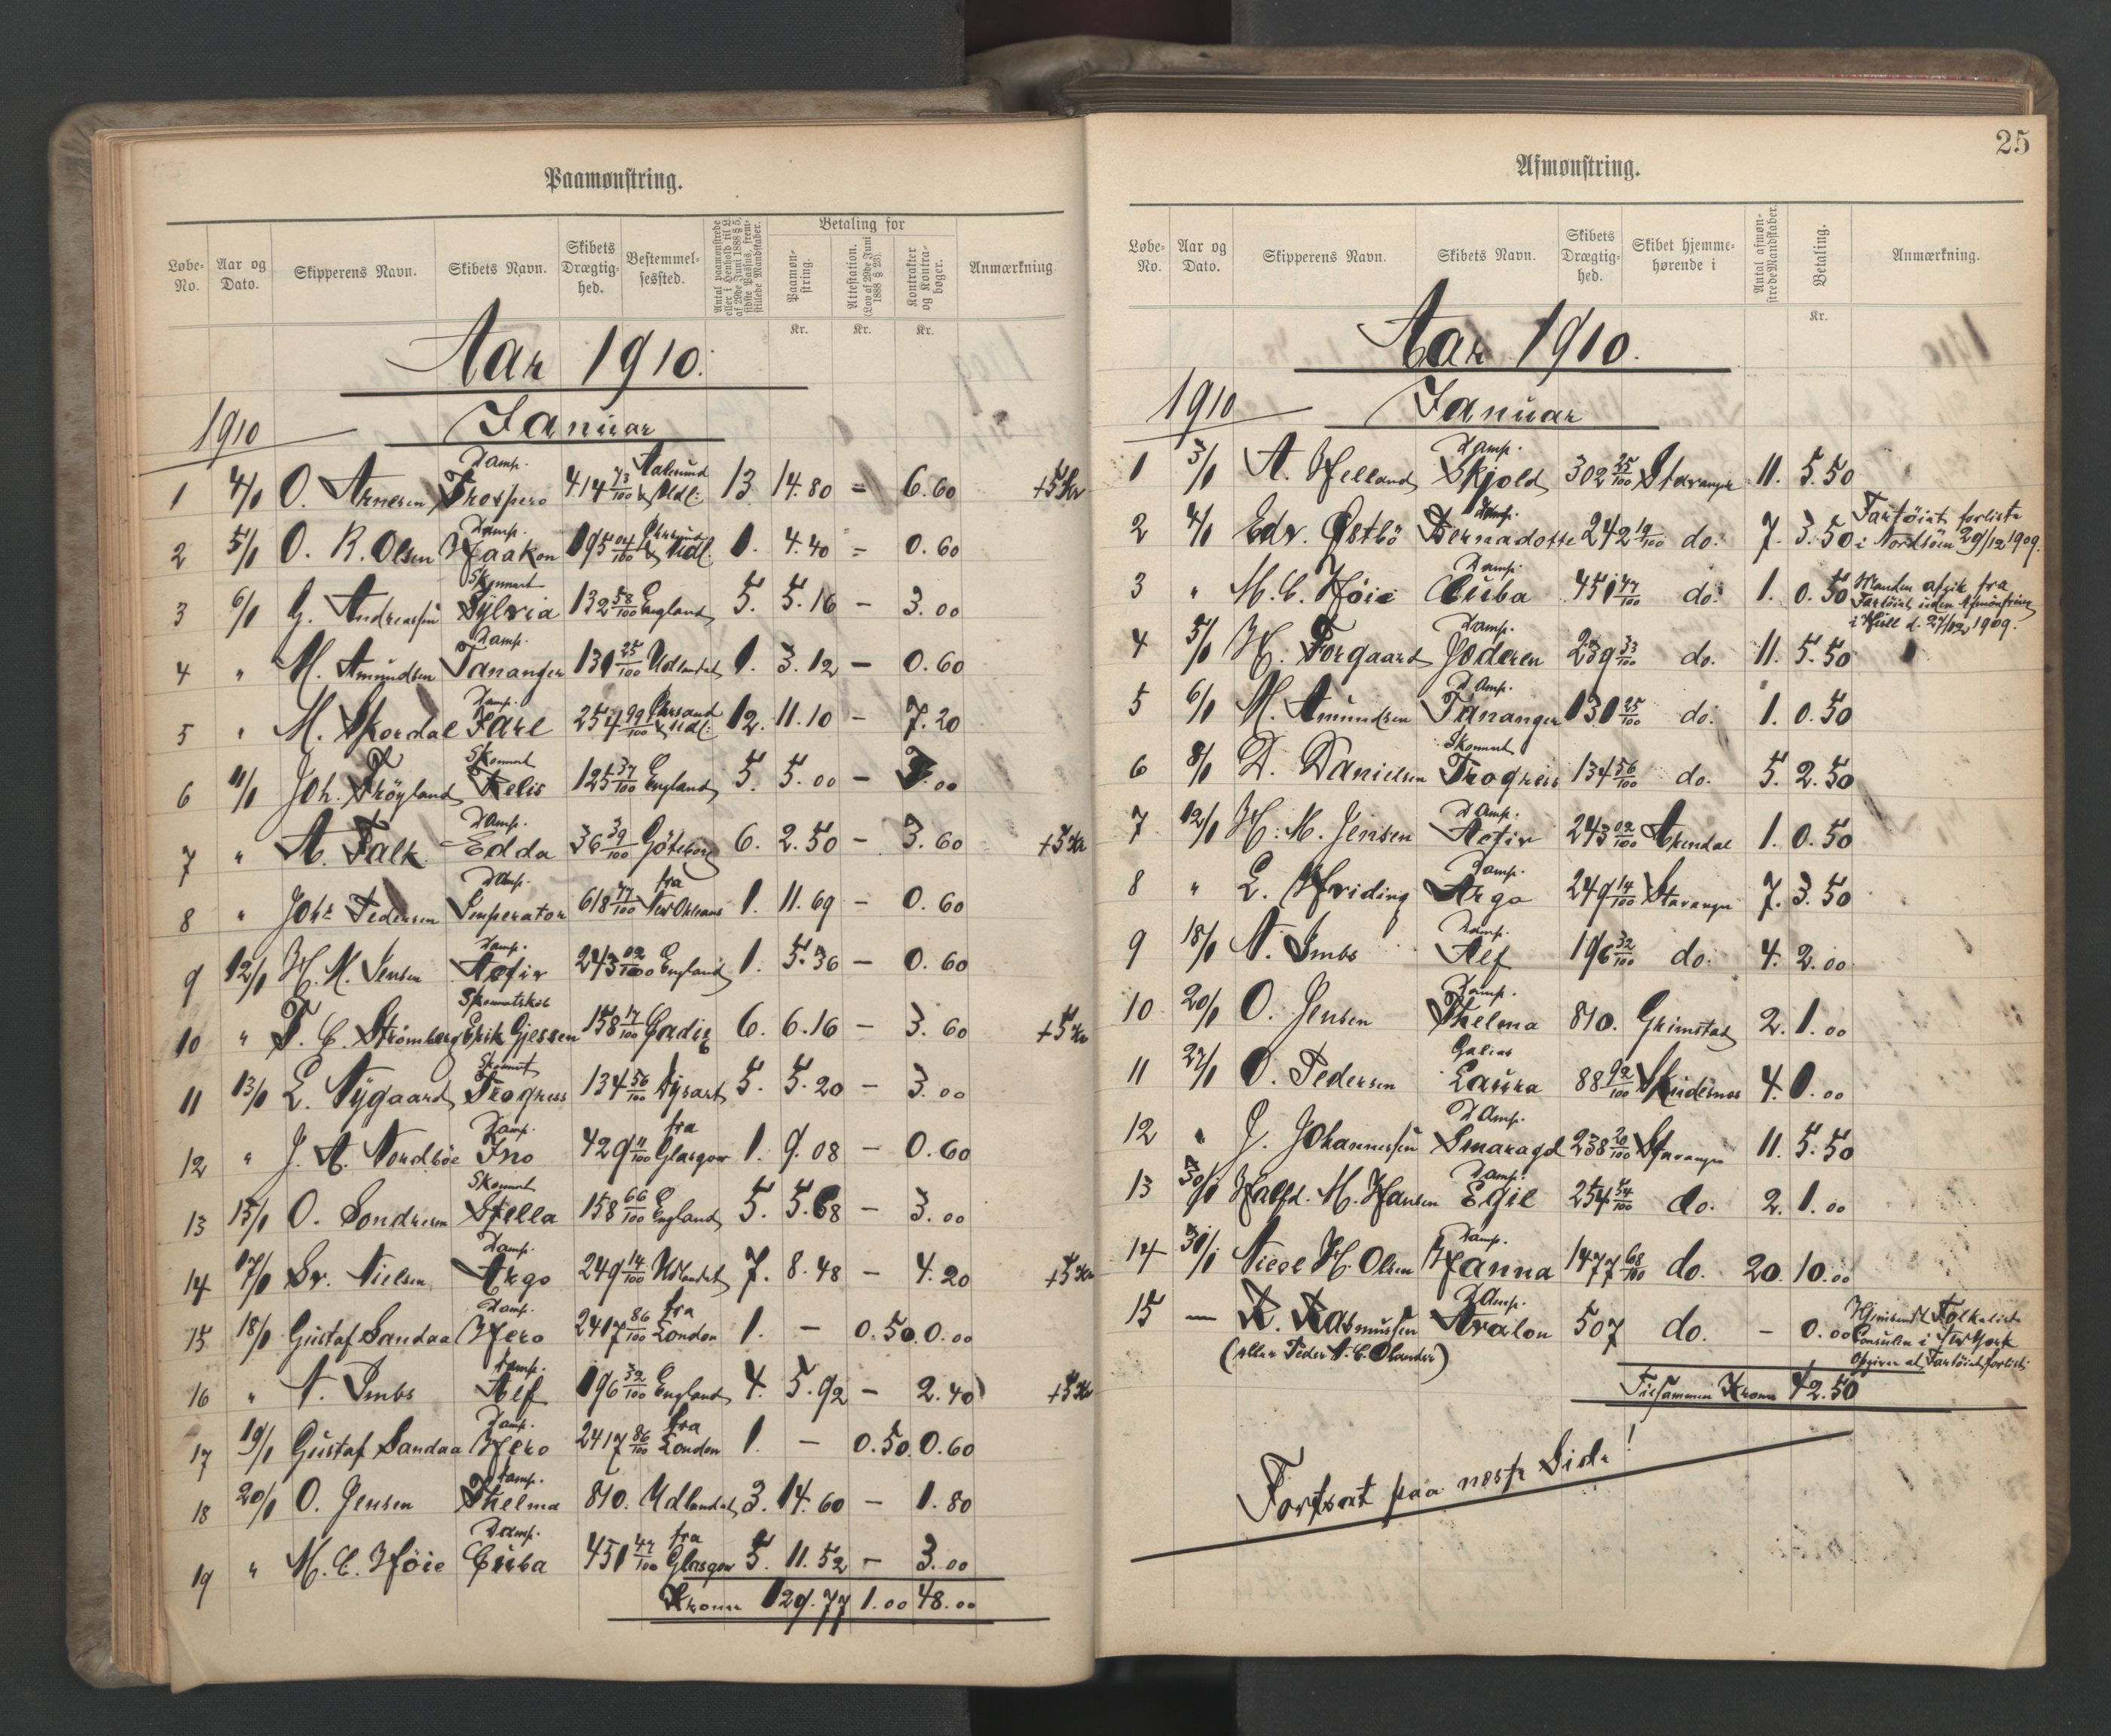 Paamønstring.
Løbe-No. Aar og Dato. Skipperens Navn. Skibets Navn. Skibets Drægtig-hed. Bestemmel-sessted. Antal paamønstrede eller i Henhold til L. af 29de Juni 1888 § 5, sidste Passus, frem-stillede Mandskaber. Betaling for Paamøn-string. Attestation. (Lov af 29de Juni 1888 § 23). Kontrakter og Kontra-bøger. Anmærkning
Kr. Kr. Kr.
Aar 1910.
1910 Januar
1 4/1 O. Arnesen Damp. Prospero 414 73/100 Aalesund & Udl: 13 14.80 = 6.60 +5 Kr
2 5/1 O. R. Olsen Damp. Haakon 195 04/100 & Udl. 1. 4.40 = 0.60
3 6/1 G. Andreassen Skonnert Sylvia 132 58/100 England 5. 5.16 – 3.00
4 " M. Amundsen Damp. Tananger 131 25/100 Udlandet 1. 3.12 – 0.60
5 " M. Skordal Damp. Jarl 254 99/100 Chrsand & Udl: 12. 11.10 – 7.20
6 11/1 Joh. Frøyland Skonnert Felis 125 37/100 England 5. 5.00 – 3.00
7 " A. Falk Damp. Edda 36 39/100 Göteborg 6. 2.50 – 3.60 +5 Kr
8 " Johs Pedersen Damp. Imperator 618 77/100 fra New Orleans 1. 11.69 – 0.60
9 12/1 H. M. Jensen Damp. Activ 243 02/100 England 1. 5.36 – 0.60
10 " F. C. Strømberg Skonnertskib Erik Gjessen 158 17/100 Cadiz 6. 6.16 – 3.60 +5 Kr
11 13/1 L. Nygaard Skonnert Progress 134 56/100 Dysart 5. 5.20 – 3.00
12 " J. A. Nordbøe Damp. Ino 429 11/100 fra Glasgow 1. 9.08 – 0.60
13 15/1 O. Sondresen Skonnert Stella 158 66/100 England 5. 5.68 – 3.00
14 17/1 Sv. Nielsen Damp. Argo 249 14/100 Udlandet 7. 8.48 – 4.20 +5 Kr
15 18/1 Gustaf Sandaa Damp. Hero 2417 86/100 fra London 1. – 0.50 0.00
16 " N. Imbs Damp. Alf 196 32/100 England 4. 5.92 – 2.40 +5 Kr
17 19/1 Gustaf Sandaa Damp. Hero 2417 86/100 fra London 1. – 0.50 0.60
18 20/1 O. Jensen Damp. Thelma 810. Udlandet 3. 14.60 – 1.80
19 " M. C. Höie Damp. Cuba 451 47/100 fra Glasgow 5 11.52 – 3.00
Kroner 129.77 1.00 48.00
25
Afmønstring.
Løbe-No. Aar og Dato. Skipperens Navn. Skibets Navn. Skibets Drægtig-hed. Skibet hjemme-hørende i Antal afmøn-strede Mandskaber. Betaling. Anmærkning.
Kr.
Aar 1910.
1910 Januar
1 3/1 A. Helland Damp. Skjold 302 25/100 Stavanger 11. 5.50
2 4/1 Edv. Østbö Damp. Bernadotte 242 19/100 do. 7. 3.50 Fartöiet forliste i Nordsöen 29/12 1909.
3 " M. C. Höie Damp. Cuba 451 47/100 do: 1. 0.50 Manden afgik fra Fartöiet uden Afmönstring i Hull d. 27/12 1909.
4 5/1 H. Torgaard Damp. Jæderen 239 33/100 do. 11. 5.50
5 6/1 M. Amundsen Damp. Tananger 131 25/100 do: 1. 0.50
6 8/1 D. Danielsen Skonnert Progress 134 56/100 do. 5. 2.50
7 12/1 H. M. Jensen Damp. Activ 243 02/100 Arendal 1. 0.50
8 " L. Hviding Damp. Argo 249 14/100 Stavanger 7. 3.50
9 18/1 N. Imbs Damp. Alf 196 32/100 do: 4. 2.00
10 20/1 O. Jensen Damp. Thelma 810. Grimstad 2. 1.00
11 27/1 O. Pedersen Galias Laura 88 92/100 Skudesnes 4. 0.00
12 " J. Johannessen Damp. Smaragd 238 20/100 Stavanger 11. 5.50
13 30/1 Halfd. M. Hansen Damp. Egil 254 54/100 do. 2. 1.00
14 31/1 Niels H. Olsen Damp. Hanna 1477 68/100 do. 20. 10.00
15 — R. Rasmussen Damp. Avalon 507 do. – 0.00 Hjemsendt Folkeliste Consulen i New York
(eller Peder N. C. Olander) Opgiver at Fartöiet forliste
Tilsammen Kroner 42.50
Fortsat paa neste Side!